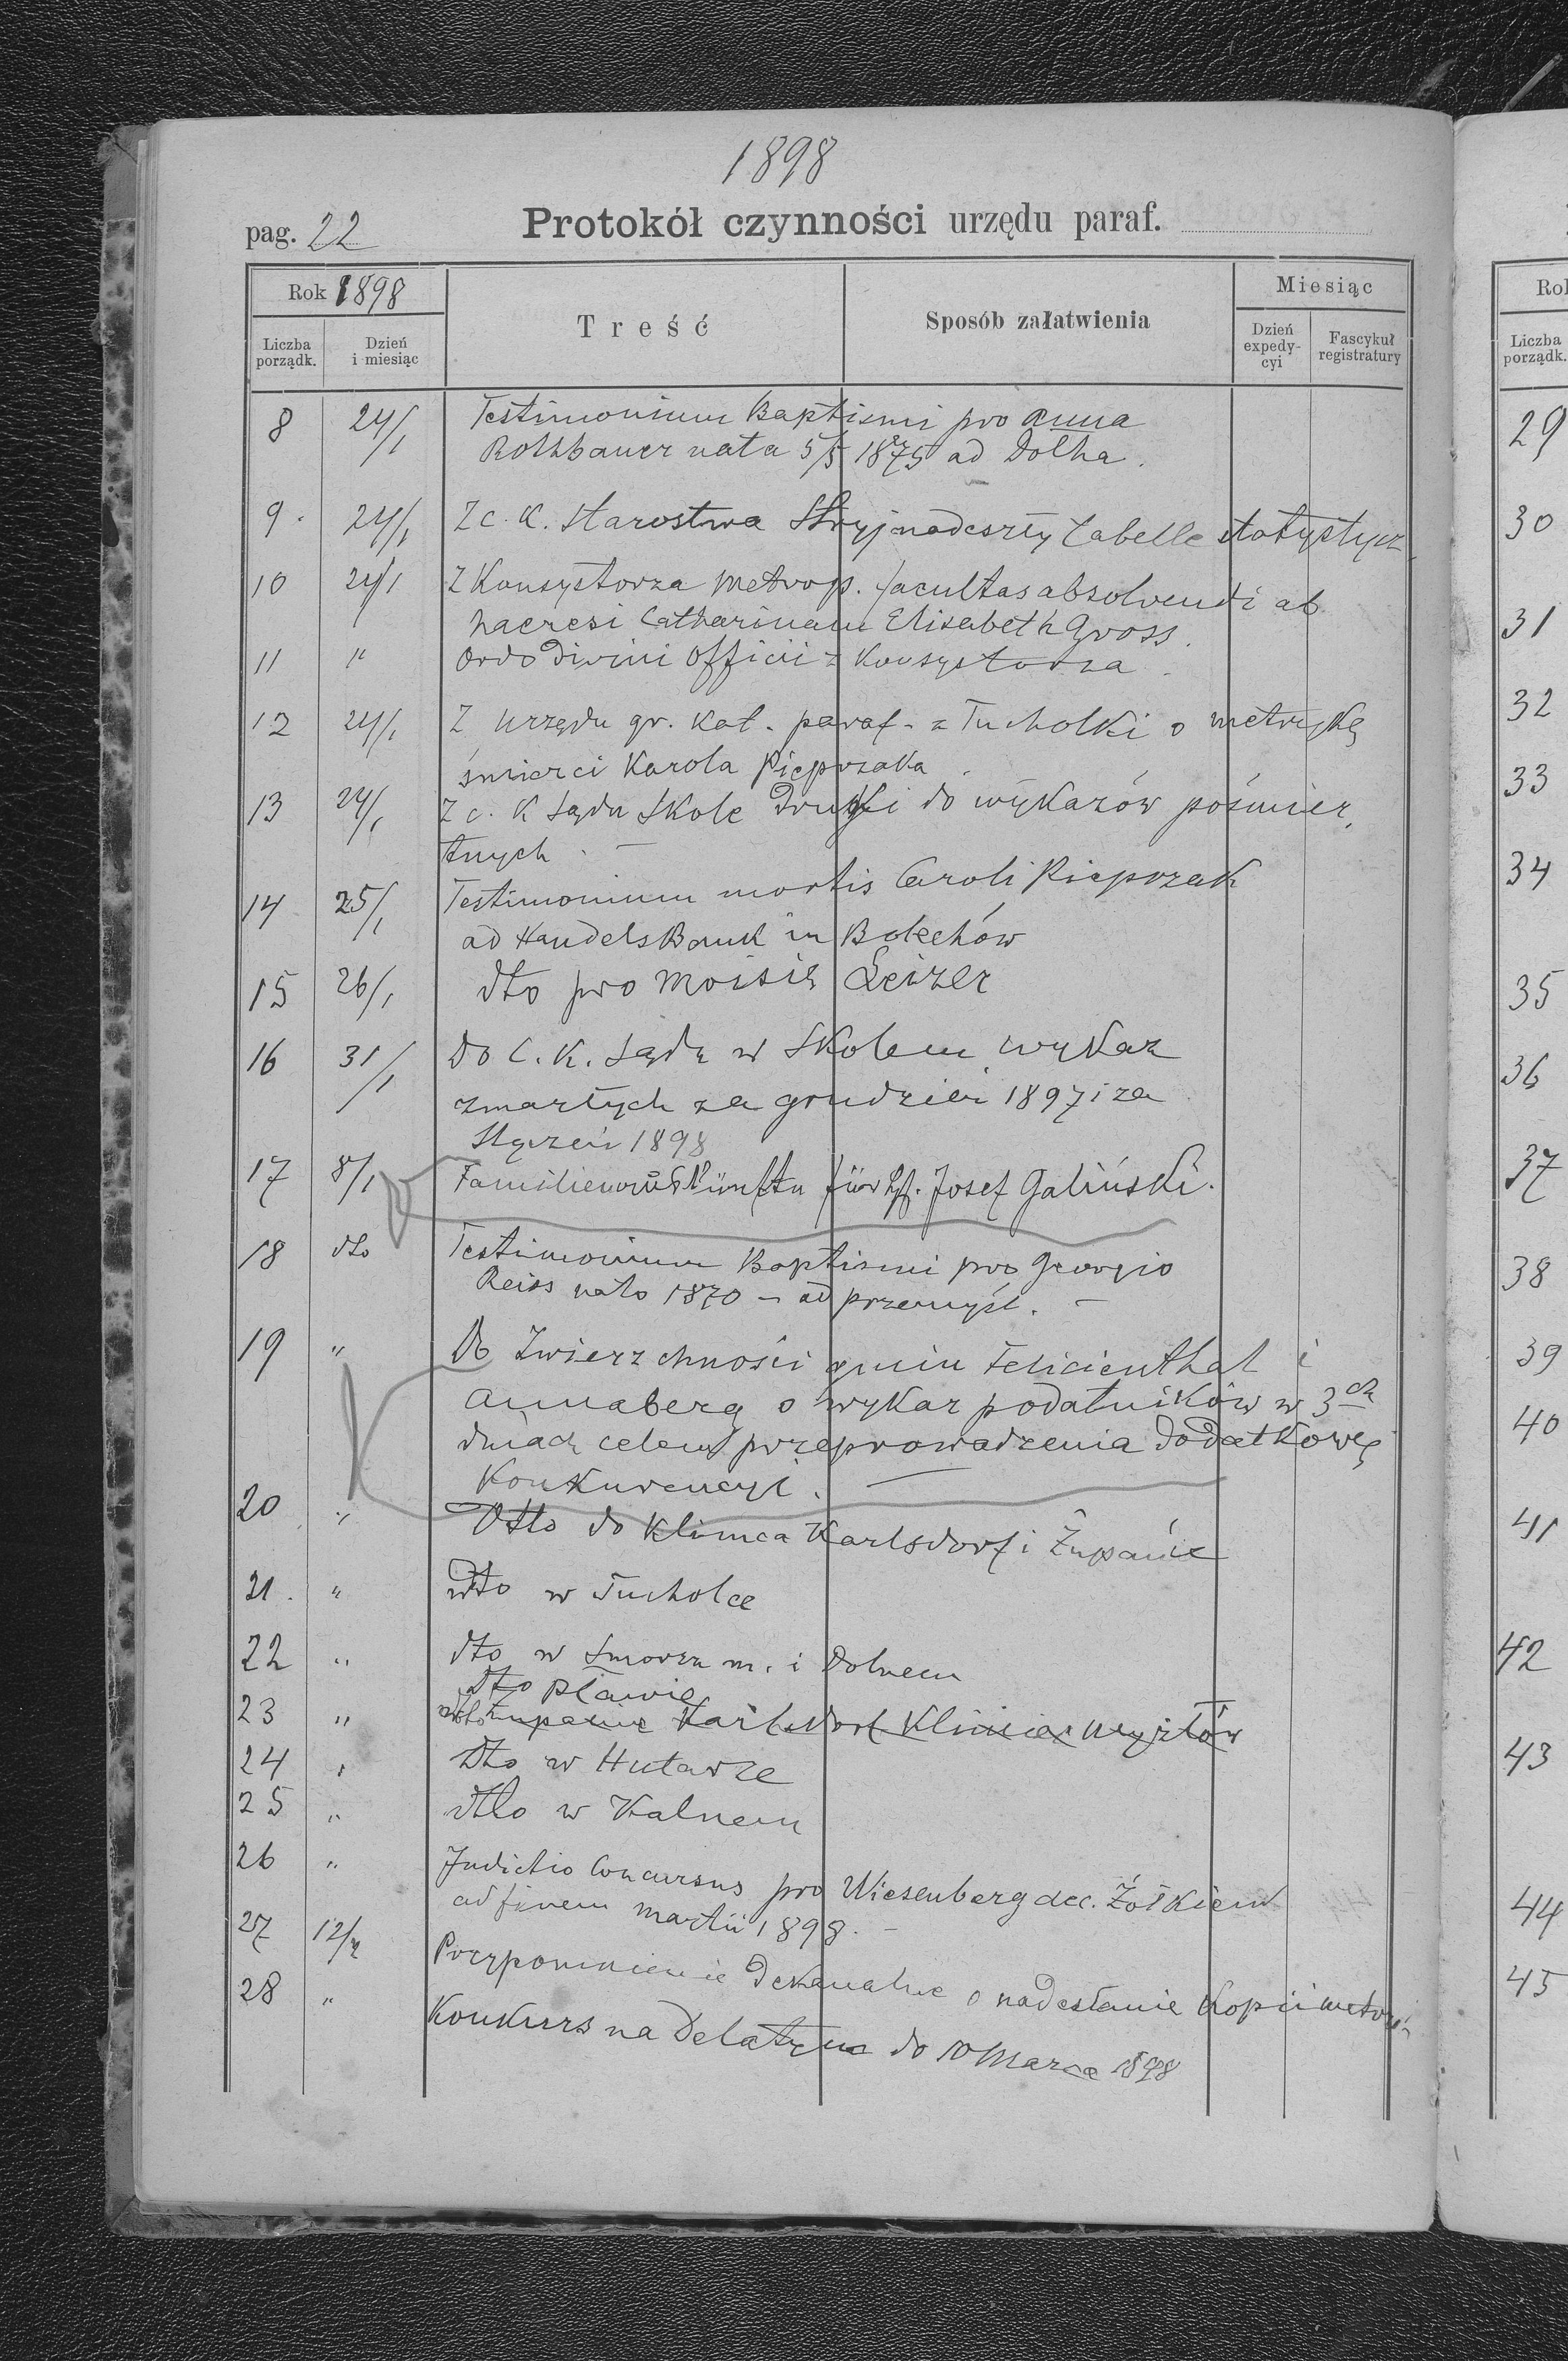 1898
pag. 22 Protokół czynności urzędu paraf.
Rok 1898
Liczba porządk.
Dzień i miesiąc
Treść
Sposób załatwienia
Miesiąc
Dzień expedy-cyi
Fascykuł registratury
8 24/1 Testimonium Baptismi pro Anna
Rothbauer nata 5/5 1875 ad Dolha.
9. 24/1 Z c. k. Starostwa Stryj nadeszły tabelle statystycz.
10 24/1 Z Konsystorza metrop. facultas absolvendi ab
haeresi Catharinam Elisabeth Gross.
11 " Ordo Divini Officii z Konsystorza.
12 24/1 Z urzędu gr. kat. paraf. z Tucholki o metrykę
śmierci Karola Pieprzaka.
13 24/1 Z c. k Sądu Skole Druki do wykazów pośmier,
tnych. —
14 25/1 Testimonium mortis Caroli Pieprzak
ad HandelsBank in Bolechów
15 26/1 dto pro Moisie Leizer
16 31/1 Do C. K. Sądu w Skolem wykaz
zmarłych za grudzień 1897 i za
Styczeń 1898
17 8/1 für Josef Galiński.
18 dto Testimonium Baptismi pro Georgio
Reiss nato 1870 — ad Przemyśl. —
19 " Do Zwierzchności gmin Felicienthal i
Annaberg o wykaz podatników w 3ch
dniach celem przeprowadzenia dodatkowej
Konkurencyi. —
20 " Dtto do Klimca Karlsdorf i Żupanie
21. " dto w Tucholce
22 " dto w Smorzu m. i Dolnem
dto Pławie
23 " dto Żupanie Karlsdorf Klimiec Wyżłów
24 " dto w Hutarze
25 " dtto w Kalnem
26 " Indictio Concursus pro Wiesenberg dec. Żółkiew
ad finem Martii 1898. —
27 12/2 Przypomnienie Dekanalne o nadesłanie Kopii
28 " Konkurs na Delatyn do 10 Marca 1898
Rok
Liczba porządk.
29
30
31
32
33
34
35
36
37
38
39
40
41
42
43
44
45